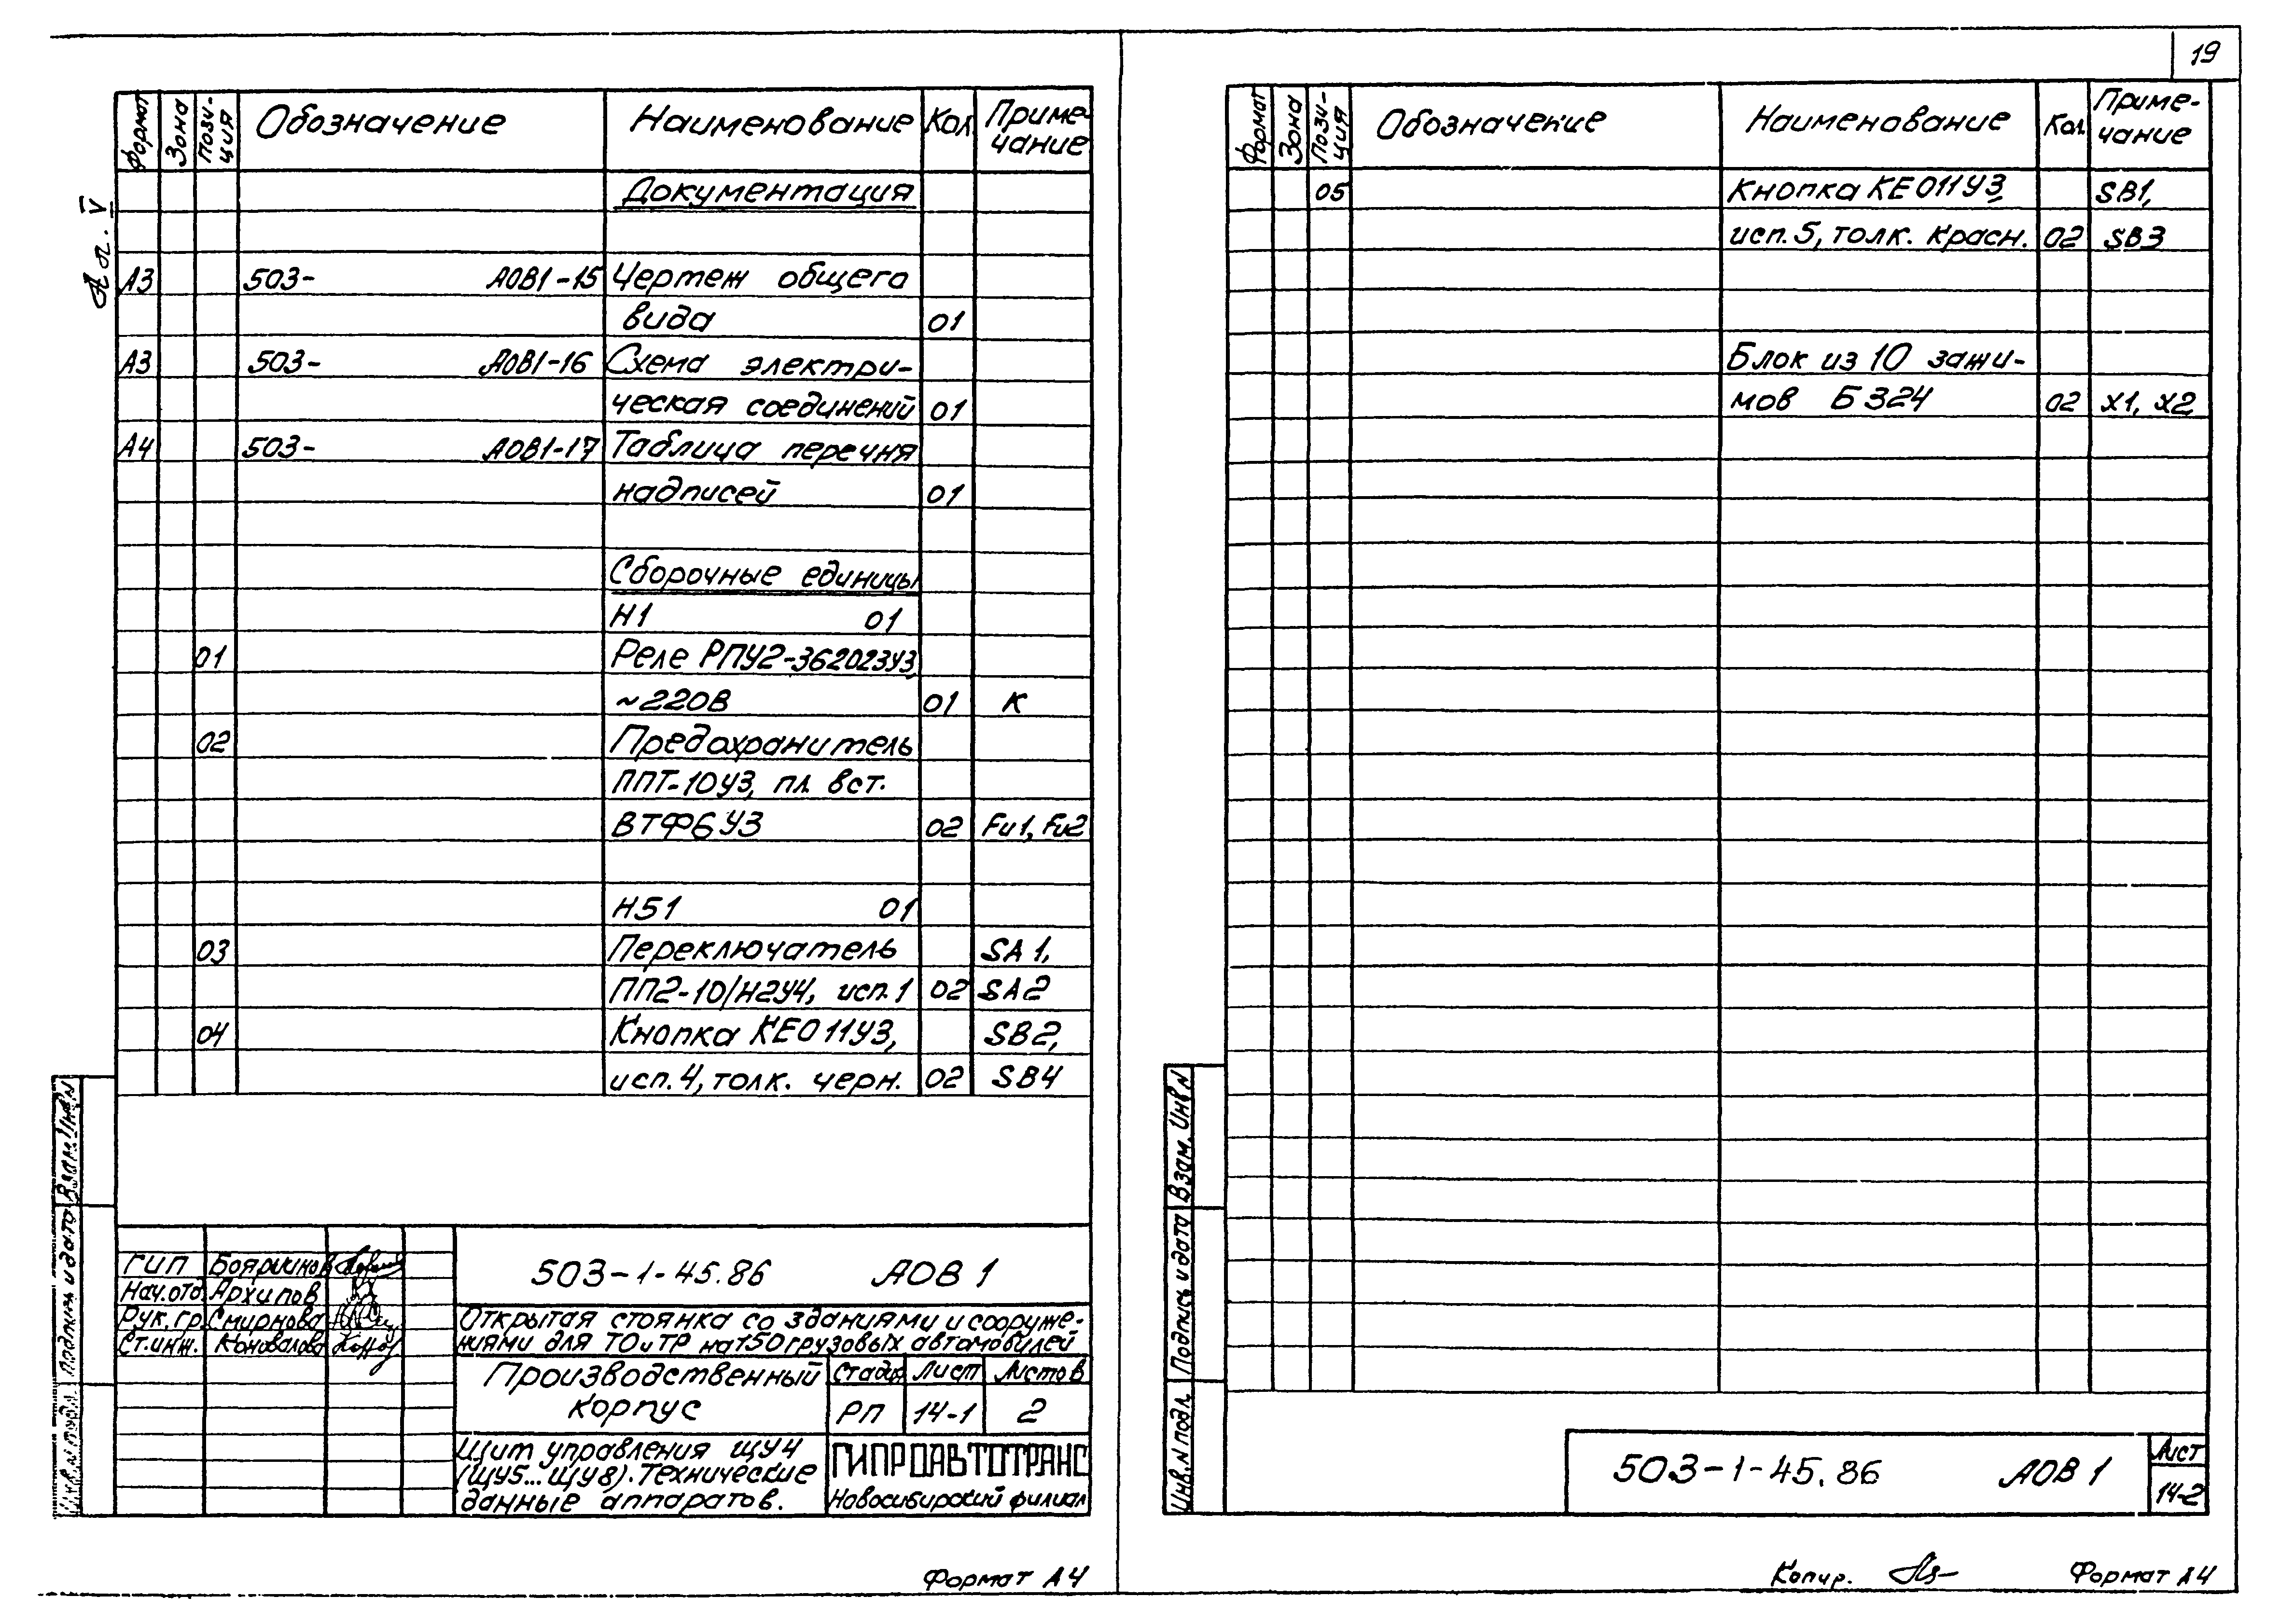 19
Ал. V
Формат Зона Пози-ция Обозначение Наименование Кол. Приме-чание
Документация
А3 503- АОВ1-15 Чертеж общега
вида 01
А3 503- АОВ1-16 Схема электри-
ческая соединений 01
А4 503- АОВ1-17 Таблица перечня
надписей 01
Сборочные единицы
Н1 01
01 Реле РПУ2-362023У3,
~220В 01 К
02 Предохранитель
ППТ-10У3, пл. вст.
ВТФ6У3 02 Fu1, Fu2
Н51 01
03 Переключатель SA1,
ПП2-10/Н2У4, исп.1 02 SA2
04 Кнопка КЕ011У3, SB2,
исп.4, толк. черн. 02 SB4
Взам. Инв.N
Подпись и дата
Инв.N подл.
ГИП Бояринов
Нач.отд. Архипов
Рук.гр. Смирнова
Ст.инж. Коновалова
503-1-45.86 АОВ1
Открытая стоянка со зданиями и сооруже-
ниями для ТО и ТР на 150 грузовых автомобилей
Производственный
корпус
Стадия Лист Листов
РП 14-1 2
Щит управления ЩУ4
(ЩУ5...ЩУ8). Технические
данные аппаратов.
ГИПРОАВТОТРАНС
Новосибирский филиал
Формат А4
Формат Зона Пози-ция Обозначение Наименование Кол. Приме-чание
05 Кнопка КЕ011У3, SB1,
исп.5, толк. красн. 02 SB3
Блок из 10 зажи-
мов Б324 02 Х1, Х2
Взам. Инв.N
Подпись и дата
Инв.N подл.
503-1-45.86 АОВ1
Лист
14-2
Копир.
Формат А4